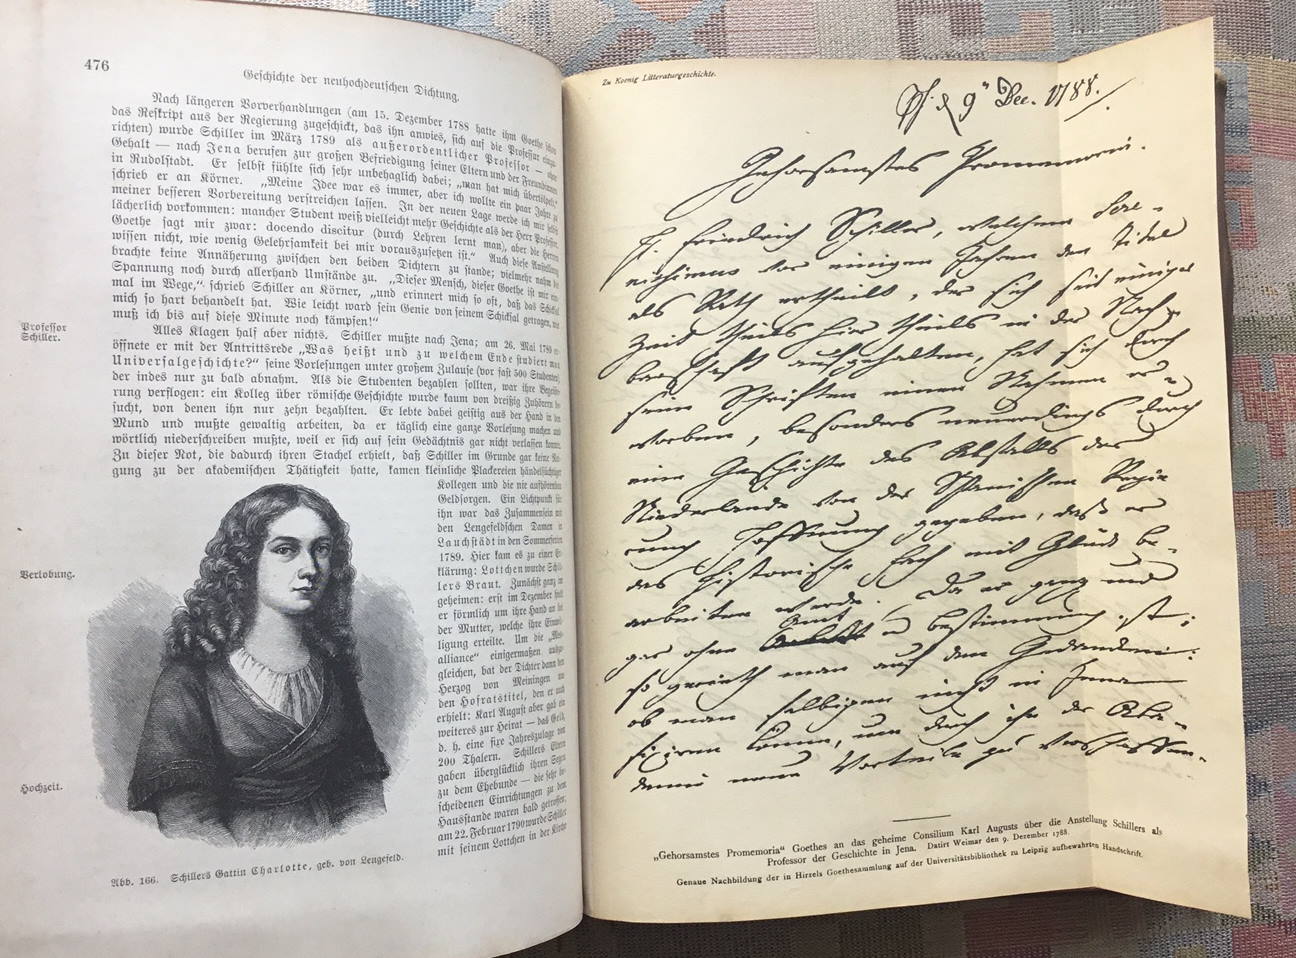 476
Geschichte der neuhochdeutschen Dichtung.
Nach längeren Vorverhandlungen (am 15. Dezember 1788 hatte ihm Goethe schon
das Reskript aus der Regierung zugeschickt, das ihn anwies, sich auf die Professur
richten) wurde Schiller im März 1789 als außerordentlicher Professor — ohne
Gehalt — nach Jena berufen zur großen Befriedigung seiner Eltern und der Freundinnen
in Rudolstadt. Er selbst fühlte sich sehr unbehaglich dabei; „man hat mich übertölpelt,“
schrieb er an Körner. „Meine Idee war es immer, aber ich wollte ein paar Jahre zu
meiner besseren Vorbereitung verstreichen lassen. In der neuen Lage werde ich mir selbst
lächerlich vorkommen: mancher Student weiß vielleicht mehr Geschichte als der Herr Professor.
Goethe sagt mir zwar: docendo discitur (durch Lehren lernt man), aber die Herren
wissen nicht, wie wenig Gelehrsamkeit bei mir vorauszusetzen ist.“ Auch diese Anstellung
brachte keine Annäherung zwischen den beiden Dichtern zu stande; vielmehr nahm die
Spannung noch durch allerhand Umstände zu. „Dieser Mensch, dieser Goethe ist mir ein-
mal im Wege,“ schrieb Schiller an Körner, „und erinnert mich so oft, daß das Schicksal
mich so hart behandelt hat. Wie leicht ward sein Genie von seinem Schicksal getragen, wie
muß ich bis auf diese Minute noch kämpfen!“
Professor
Schiller.
Alles Klagen half aber nichts. Schiller mußte nach Jena; am 26. Mai 1789 er-
öffnete er mit der Antrittsrede „Was heißt und zu welchem Ende studiert man
Universalgeschichte?“ seine Vorlesungen unter großem Zulaufe (vor fast 500 Studenten),
der indes nur zu bald abnahm. Als die Studenten bezahlen sollten, war ihre Begeiste-
rung verflogen: ein Kolleg über römische Geschichte wurde kaum von dreißig Zuhörern be-
sucht, von denen ihn nur zehn bezahlten. Er lebte dabei geistig aus der Hand in den
Mund und mußte gewaltig arbeiten, da er täglich eine ganze Vorlesung machen und
wörtlich niederschreiben mußte, weil er sich auf sein Gedächtnis gar nicht verlassen konnte.
Zu dieser Not, die dadurch ihren Stachel erhielt, daß Schiller im Grunde gar keine Nei-
gung zu der akademischen Thätigkeit hatte, kamen kleinliche Plackereien händelsüchtiger
Kollegen und die nie aufhörenden
Geldsorgen. Ein Lichtpunkt für
ihn war das Zusammensein mit
den Lengefeldschen Damen in
Lauchstädt in den Sommerferien
1789. Hier kam es zu einer Er-
klärung: Lottchen wurde Schil-
lers Braut. Zunächst ganz im
geheimen: erst im Dezember hielt
er förmlich um ihre Hand an bei
der Mutter, welche ihre Einwil-
ligung erteilte. Um die „Mes-
alliance“ einigermaßen auszu-
gleichen, bat der Dichter dann den
Herzog von Meiningen um
den Hofratstitel, den er auch
erhielt; Karl August aber gab ein
weiteres zur Heirat — das Geld,
d. h. eine fixe Jahreszulage von
200 Thalern. Schillers Eltern
gaben überglücklich ihren Segen
zu dem Ehebunde — die sehr be-
scheidenen Einrichtungen zu dem
Hausstande waren bald getroffen;
am 22. Februar 1790 wurde Schiller
mit seinem Lottchen in der Kirche
Verlobung.
Hochzeit.
Abb. 166. Schillers Gattin Charlotte, geb. von Lengefeld.
Zu Koenig Litteraturgeschichte.
d. 9 Dec. 1788.
Gehorsamstes Promemoria.
H. Friedrich Schiller, welchem Sere-
nissimus vor einigen Jahren den Titel
als Rath ertheilt, der sich seit einiger
Zeit theils hier theils in der Nach-
barschafft aufgehalten, hat sich durch
seine Schriften einen Nahmen er-
worben, besonders neuerdings durch
eine Geschichte des Abfalls der
Niederlande von der Spanischen Regie-
rung Hoffnung gegeben, daß er
das historische Fach mit Glück be-
arbeiten werde. Da er ganz und
gar ohne Amt u Bestimmung ist;
so gerieth man auf den Gedancken:
ob man selbigen nicht in Jena
fixiren könne, um durch ihn der Aka-
demie neue Vortheile zu verschaffen.
„Gehorsamstes Promemoria“ Goethes an das geheime Consilium Karl Augusts über die Anstellung Schillers als
Professor der Geschichte in Jena. Datirt Weimar den 9. Dezember 1788.
Genaue Nachbildung der in Hirzels Goethesammlung auf der Universitätsbibliothek zu Leipzig aufbewahrten Handschrift.